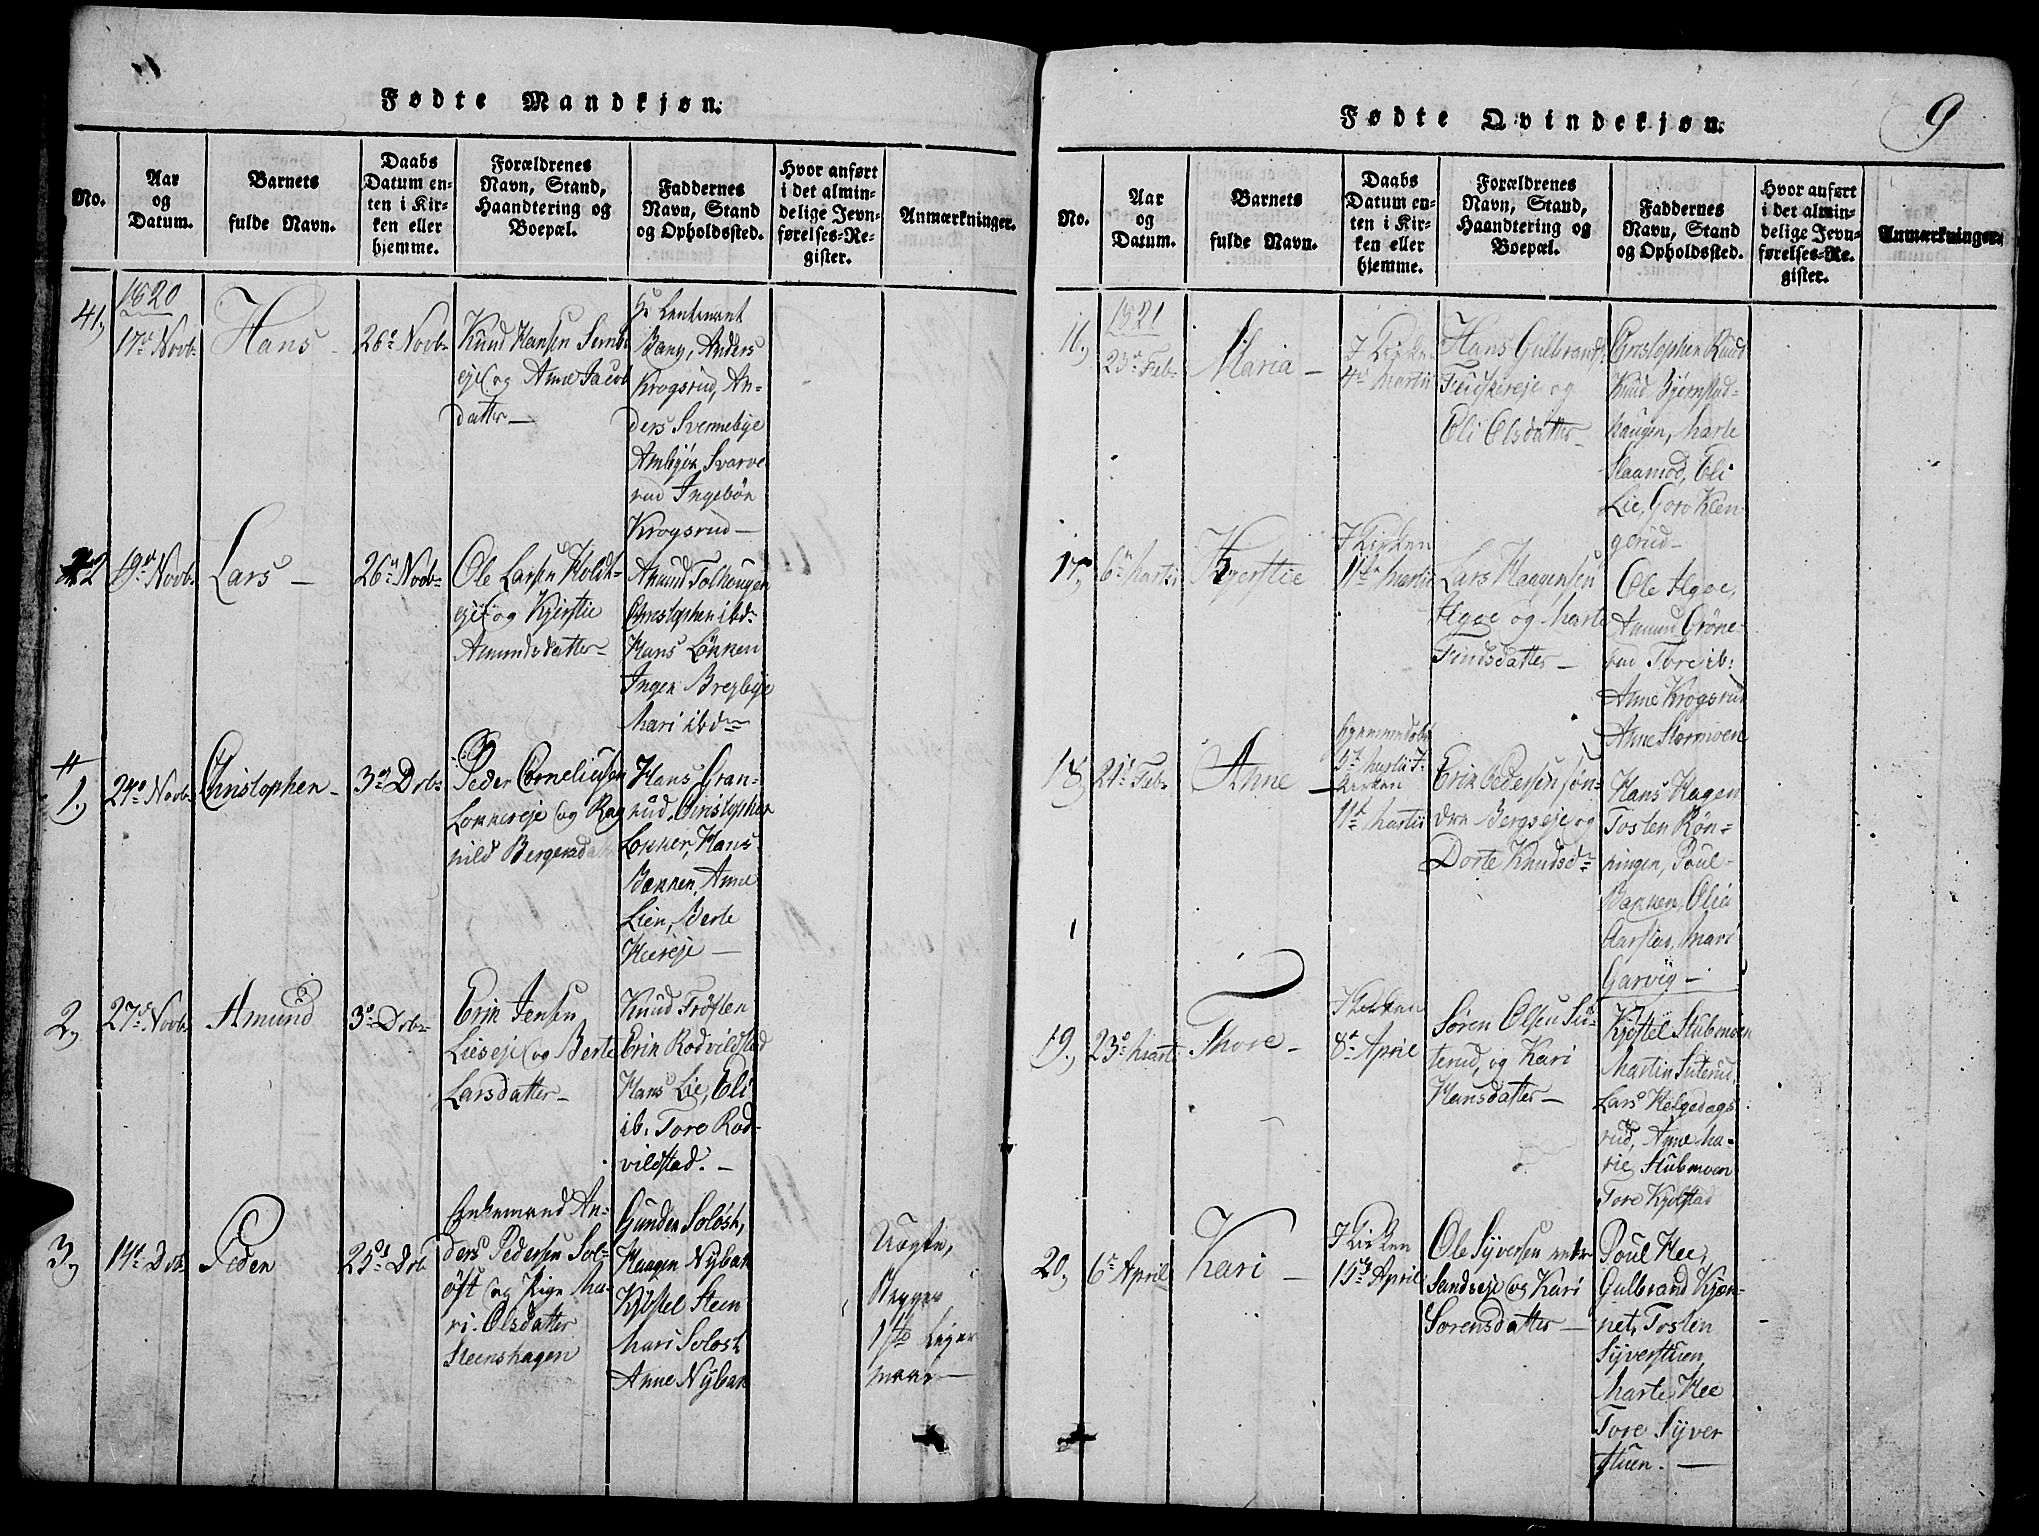 Fødte Mandkjøn.
No.
Aar
og
Datum.
Barnets
fulde Navn.
Daabs
Datum en-
ten i Kir-
ken eller
hjemme.
Forældrenes
Navn, Stand,
Haandtering og
Boepæl.
Faddernes
Navn, Stand
og Opholdssted.
Hvor anført
i det almin-
delige Jevn-
førelses-Re-
gister.
Anmærkninger.
1820
41,
17de Novb.
Hans
26de Novb.
Knud Hansen
og Anne Jacob
datter
Leutenant
Bang, Anders
Krogsrud, An-
ders Svennebye
Svarve
rud Ingebör
Krogsrud
42
19de Novb.
Lars
26de Novb.
Ole Larsen
og Kjerstie
Amundsdatter
Amund Tolhougen
Christopher ibd.
Hans Lökken
Inger Bregbye
Mari ibd.
1,
24de Novb.
Christopher
3de Dcb.
Peder Corneliusen
og Rag
nild
Hans Gran-
rud, Christopher
Lokker, Hans
Bakken, Anne
Lien, Berte
2,
27de Novb.
Amund
3de Dcb.
Erik Jensen
Lieseje og Berte
Larsdatter
Knud Fröslen
Erik Rodvildstad
Hans Lie, Eli
ib. Tore Rod-
vildstad.
3,
14de Dcb.
Peder
25de Dcb
Enkemand An-
ders Pedersen Sol-
öst og Pige Ma-
ri Olsdatter
Steenshagen
Gunder Solöst,
Haagen Nyban
Kjöstel Steen
Mari Solöst
Anne Nyban
Uægte,
Begges
1ste Leger
maal
Fødte Qvindekjøn.
9
No.
Aar
og
Datum.
Barnets
fulde Navn.
Daabs
Datum en-
ten i Kir-
ken eller
hjemme.
Forældrenes
Navn, Stand,
Haandtering og
Boepæl.
Faddernes
Navn, Stand
og Opholdssted.
Hvor anført
i det almin-
delige Jevn-
førelses-Re-
gister.
Anmærkninger.
1821
16,
23de Feb.
Maria
I Kirken
4de Martii
Hans Gulbrands.
og
Eli Olsdatter
Christopher Ruud
Knud Bjørnstad-
haugen, Marte
Slaamod, Eli
Lie, Goro Klen-
gerud
17,
6te Martii
Kjerstie
I Kirken
11te Martii
Lars Haagensen
og Marte
Findsdatter
Ole
Amund Gröne-
rud Tore ib.
Anne Krogsrud
Anne Stormoen
18,
21de Feb.
Anne
hjemmedöbt
5te Martii I
Kirken
11te Martii
Erik Pedersen Søn-
dre Bergseje og
Dorte Knudsd
Hans Hagen
Tosten Rön-
ningen, Poul
Bakken, Olia
Harstad, Mari
Garvig
19,
23de Martii
Thore
I Kirken
8de April
Søren Olsen Su-
terud, og Kari
Hansdatter
Kjöstel Stubmoen
Martin Suterud,
Lars Helgedags
rud, Anne Ma-
rie Stubmoen
Tore Kjolstad
20,
6te April
Kari
I Kirken
15de April
Ole Syversen
Sandseje og Kari
Sorensdatter
Poul Hee,
Gulbrand Kjön-
net, Tosten
Syverstuen
Marte Hee
Tore Syver
stuen.